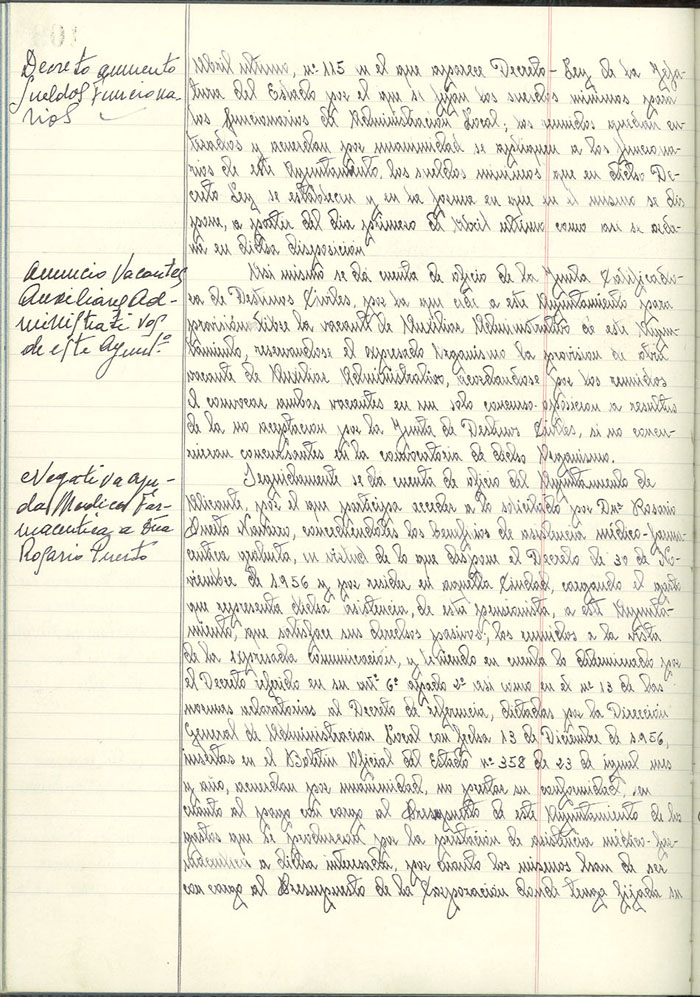 Decreto aumento
sueldos funciona-
rios
Abril último, nº 115 en el que aparece Decreto-Ley de la Jefa-
tura del Estado por el que se fijan los sueldos mínimos para
los funcionarios de Administración Local; los reunidos quedan en-
terados y acuerdan por unanimidad se apliquen a los funciona-
rios de este Ayuntamiento, los sueldos mínimos que en dicho De-
creto Ley se establecen y en la forma en que en el mismo se dis-
pone, a partir del día primero de Abril último como así se orde-
na en dicha disposición
Anuncio Vacantes
Auxiliares Ad-
ministrativos
de este Ayuntº
Así mismo se da cuenta de oficio de la Junta Calificado-
ra de Destinos Civiles, por la que cede a este Ayuntamiento para
provisión libre la vacante de Auxiliar Administrativo de este Ayun-
tamiento, reservandose el expresado Organismo la provisión de otra
vacante de Auxiliar Administrativo, acordandose por los reunidos
el convocar ambas vacantes en un solo concurso-oposición a resultas
de la no aceptación por la Junta de Destinos Civiles, si no concu-
rrieran concursantes en la convocatoria de dicho Organismo.
Negativa ayu-
da Medico Far-
maceutica a Dña
Rosario Puerto
Seguidamente se da cuenta de oficio del Ayuntamiento de
Alicante, por el que participa acceder a lo solicitado por Dña Rosario
Puerto Navarro, concediendoles los beneficios de asistencia médico-farma-
ceutica gratuita, en virtud de lo que dispone el Decreto de 30 de No-
viembre de 1956 y por residir en aquella Ciudad, cargando el gasto
que representa dicha asistencia, de esta pensionista, a este Ayunta-
miento, que satisface sus derechos pasivos; los reunidos a la vista
de la expresada comunicación, y teniendo en cuenta lo determinado por
el Decreto referido en su artº 6º apartado 2º así como en el nº 13 de las
normas aclaratorias al Decreto de referencia, dictadas por la Dirección
General de Administración Local con fecha 13 de Diciembre de 1956,
insertas en el Boletín Oficial del Estado nº 358 de 23 de igual mes
y año, acuerdan por unanimidad, no prestar su conformidad, en
cuanto al pago con cargo al Presupuesto de este Ayuntamiento de los
gastos que se produzcan por la prestación de asistencia médico-far-
maceutica a dicha interesada, por cuanto los mismos han de ser
con cargo al Presupuesto de la Corporación donde tenga fijada su